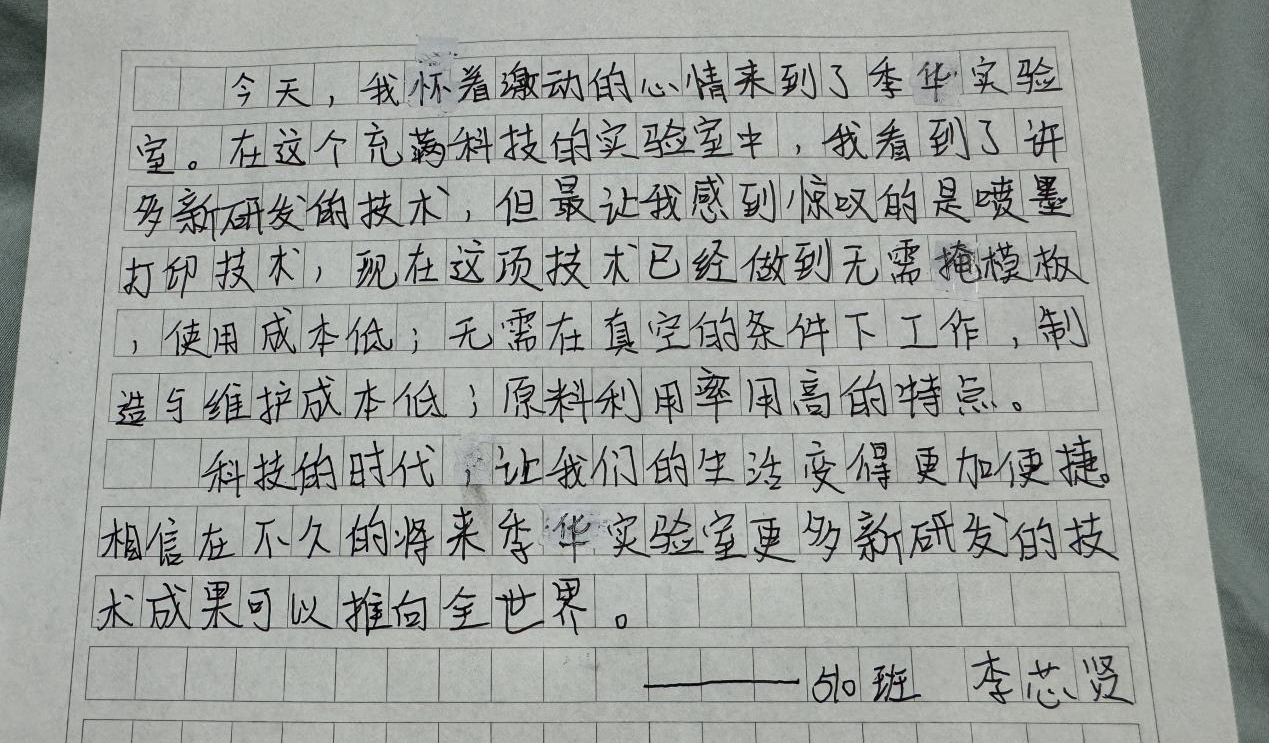 今天，我怀着激动的心情来到了季华实验
室。在这个充满科技的实验室中，我看到了许
多新研发的技术，但最让我感到惊叹的是喷墨
打印技术，现在这项技术已经做到无需掩模板
，使用成本低；无需在真空的条件下工作，制
造与维护成本低；原料利用率用高的特点。
科技的时代，让我们的生活变得更加便捷。
相信在不久的将来季华实验室更多新研发的技
术成果可以推向全世界。
——510班 李芯贤